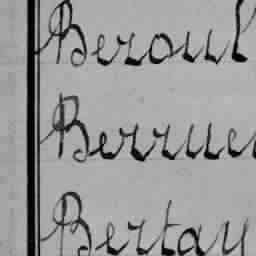 Beroul
Berrue
Bertay